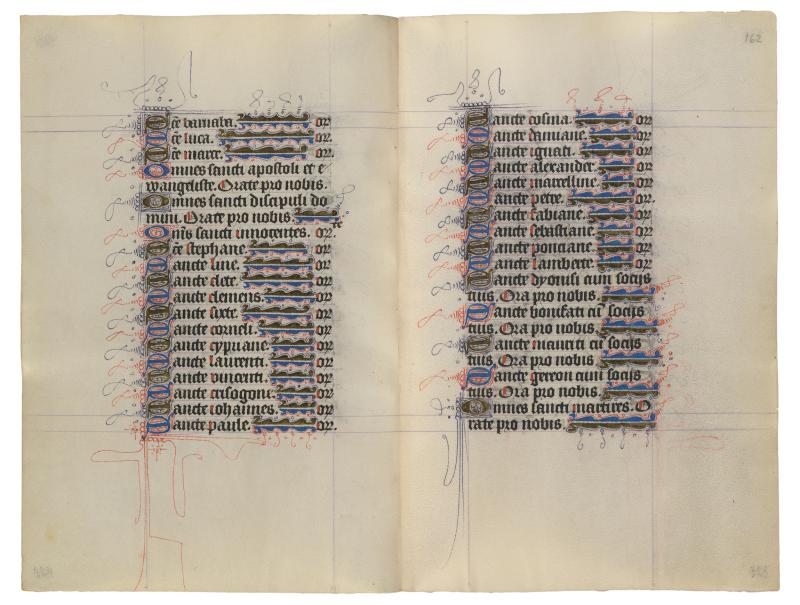 Sce barnaba. or.
Sce luca. or.
Sce marce. or.
Omnes sancti apostoli et e
wangeliste. Orate pro nobis.
Omnes sancti discipuli do
mini. Orate pro nobis.
Oms sancti innocentes. or.
Sce stephane. or.
Sancte line. or.
Sancte clete. or.
Sancte clemens. or.
Sancte sixte. or.
Sancte corneli. or.
Sancte cypriane. or.
Sancte laurenti. or.
Sancte vincenti. or.
Sancte crisogone. or.
Sancte iohannes. or.
Sancte paule. or.
162
Sancte cosma. or.
Sancte damiane. or.
Sancte ignati. or.
Sancte alexander. or.
Sancte marcelline. or.
Sancte petre. or.
Sancte fabiane. or.
Sancte sebastiane. or.
Sancte ponciane. or.
Sancte lamberte. or.
Sancte dyonisi cum socijs
tuis. Ora pro nobis.
Sancte bonifati cu socijs
tuis. Ora pro nobis.
Sancte mauriti cu socijs
tuis. Ora pro nobis
Sancte gereon cum socijs
tuis. Ora pro nobis.
Omnes sancti martires. O
rate pro nobis.